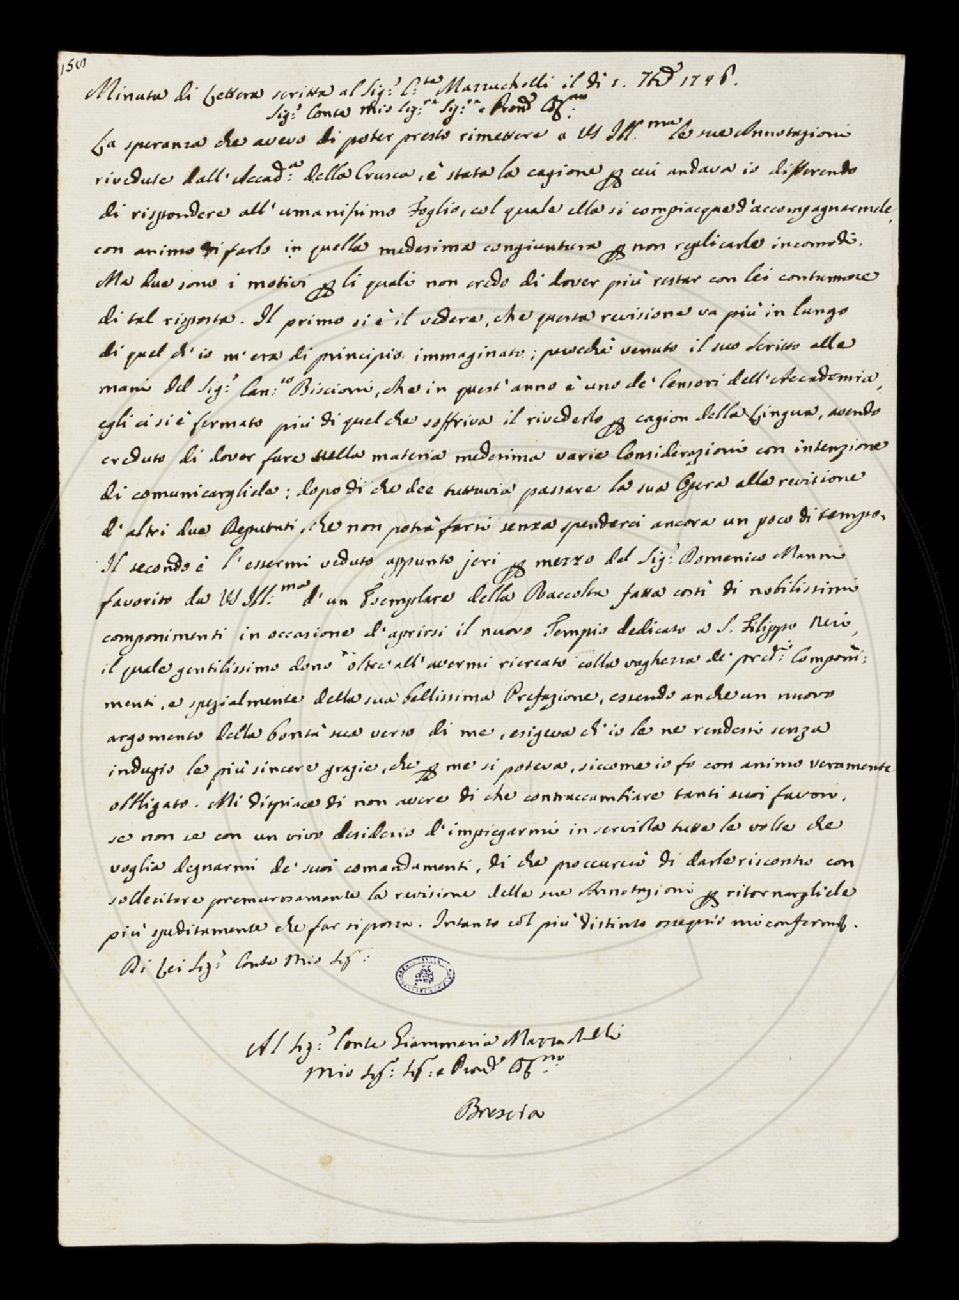 150
Minuta di Lettera scritta al Sig.r C.te Mazzuchelli il dì 1. 7bre 1746.
Sig.r Conte Mio Sig.r Sig.r e Pron.
La speranza che avevo di poter presto rimettere a VS Ill.ma le sue Annotazioni
rivedute dall'Accad.a della Crusca, è stata la cagione per cui andava io differendo
di rispondere all'umanissimo Foglio, col quale ella si compiacque d'accompagnarmele,
con animo di farlo in quella medesima congiuntura per non replicarle incomodi.
Ma due sono i motivi per li quali non credo di dover più restar con lei contumace
di tal risposta. Il primo si è il vedere, che questa revisione va più in lungo
di quel ch'io m'era di principio immaginato; perochè venuto il suo Scritto alle
mani del Sig.r Can.co Biscioni, che in quest'anno è uno de' Censori dell'Accademia,
egli ci si è fermato più di quel che soffriva il rivederlo per cagion della Lingua, avendo
creduto di dover fare sulla materia medesima varie Considerazioni con intenzione
di comunicargliele; dopo di che dee tuttavia passare la sua Opera alla revisione
d'altri due Deputati, che non potrà farsi senza spenderci ancora un poco di tempo.
Il secondo è l'essermi veduto appunto jeri per mezzo del Sig.r Domenico Manni
favorito da VS Ill.ma d'un Esemplare della Raccolta fatta costì di nobilissimi
componimenti in occasione d'aprirsi il nuovo Tempio dedicato a S. Filippo Neri,
il quale gentilissimo dono oltre all'avermi ricreato colla vaghezza de' pred.i Componi=
menti, e spezialmente della sua bellissima Prefazione, essendo anche un nuovo
argomento della bontà sua verso di me, esigeva ch'io le ne rendessi senza
indugio le più sincere grazie, che per me si poteva, siccome io fo con animo veramente
obbligato. Mi dispiace di non avere di che contraccambiare tanti suoi favori,
se non se con un vivo desiderio d'impiegarmi in servirla tutte le volte che
voglia degnarmi de' suoi comandamenti, di che proccurerò di darle riscontro con
sollecitare premurosamente la revisione delle sue Annotazioni per ritornargliele
più speditamente che far si possa. Intanto col più distinto ossequio mi confermo.
Di Lei Sig.r Conte Mio Sig.r
Al Sig.r Conte Giammaria Mazzuchelli
Mio Sig.r Sig.r e Pron.
Brescia